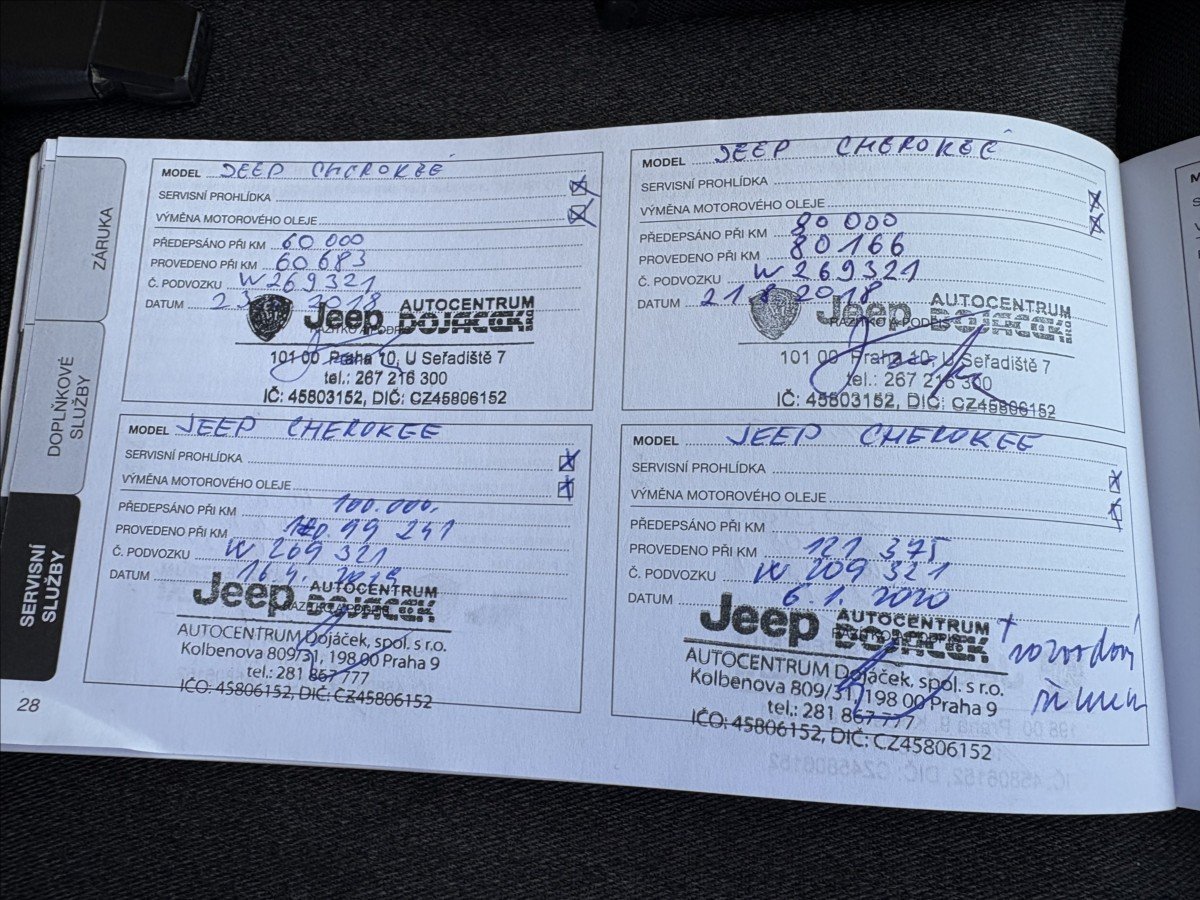 ZÁRUKA
DOPLŇKOVÉ
SLUŽBY
SERVISNÍ
SLUŽBY
28
MODEL JEEP CHEROKEE
SERVISNÍ PROHLÍDKA
VÝMĚNA MOTOROVÉHO OLEJE
PŘEDEPSÁNO PŘI KM 60 000
PROVEDENO PŘI KM 60 683
Č. PODVOZKU W269321
DATUM 2018
Jeep AUTOCENTRUM
DOJÁČEK
101 00 Praha 10, U Seřadiště 7
tel.: 267 216 300
IČ: 45803152, DIČ: CZ45806152
MODEL JEEP CHEROKEE
SERVISNÍ PROHLÍDKA
VÝMĚNA MOTOROVÉHO OLEJE
PŘEDEPSÁNO PŘI KM 80 000
PROVEDENO PŘI KM 80166
Č. PODVOZKU W269321
DATUM 21 8 2018
Jeep AUTOCENTRUM
RAZÍTKO A PODPIS DOJÁČEK
101 00 Praha 10, U Seřadiště 7
tel.: 267 216 300
IČ: 45803152, DIČ: CZ45806152
MODEL JEEP CHEROKEE
SERVISNÍ PROHLÍDKA
VÝMĚNA MOTOROVÉHO OLEJE
PŘEDEPSÁNO PŘI KM 100.000.
PROVEDENO PŘI KM 99 241
Č. PODVOZKU W 269 321
DATUM 16 4. 2019
Jeep AUTOCENTRUM
DOJÁČEK
AUTOCENTRUM Dojáček, spol. s r.o.
Kolbenova 809/31, 198 00 Praha 9
tel.: 281 867 777
IČO: 45806152, DIČ: CZ45806152
MODEL JEEP CHEROKEE
SERVISNÍ PROHLÍDKA
VÝMĚNA MOTOROVÉHO OLEJE
PŘEDEPSÁNO PŘI KM
PROVEDENO PŘI KM 121 375
Č. PODVOZKU W 269 321
DATUM 6 1. 2020
Jeep AUTOCENTRUM
DOJÁČEK
+ rozvodový
AUTOCENTRUM Dojáček, spol. s r.o.
Kolbenova 809/31, 198 00 Praha 9
tel.: 281 867 777
IČO: 45806152, DIČ: CZ45806152